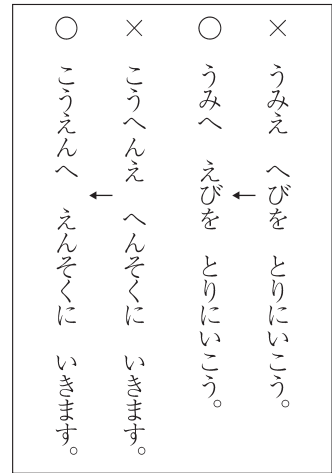 × うみえ へびを とりにいこう。
○ うみへ えびを とりにいこう。
× こうへんえ へんそくに いきます。
○ こうえんへ えんそくに いきます。